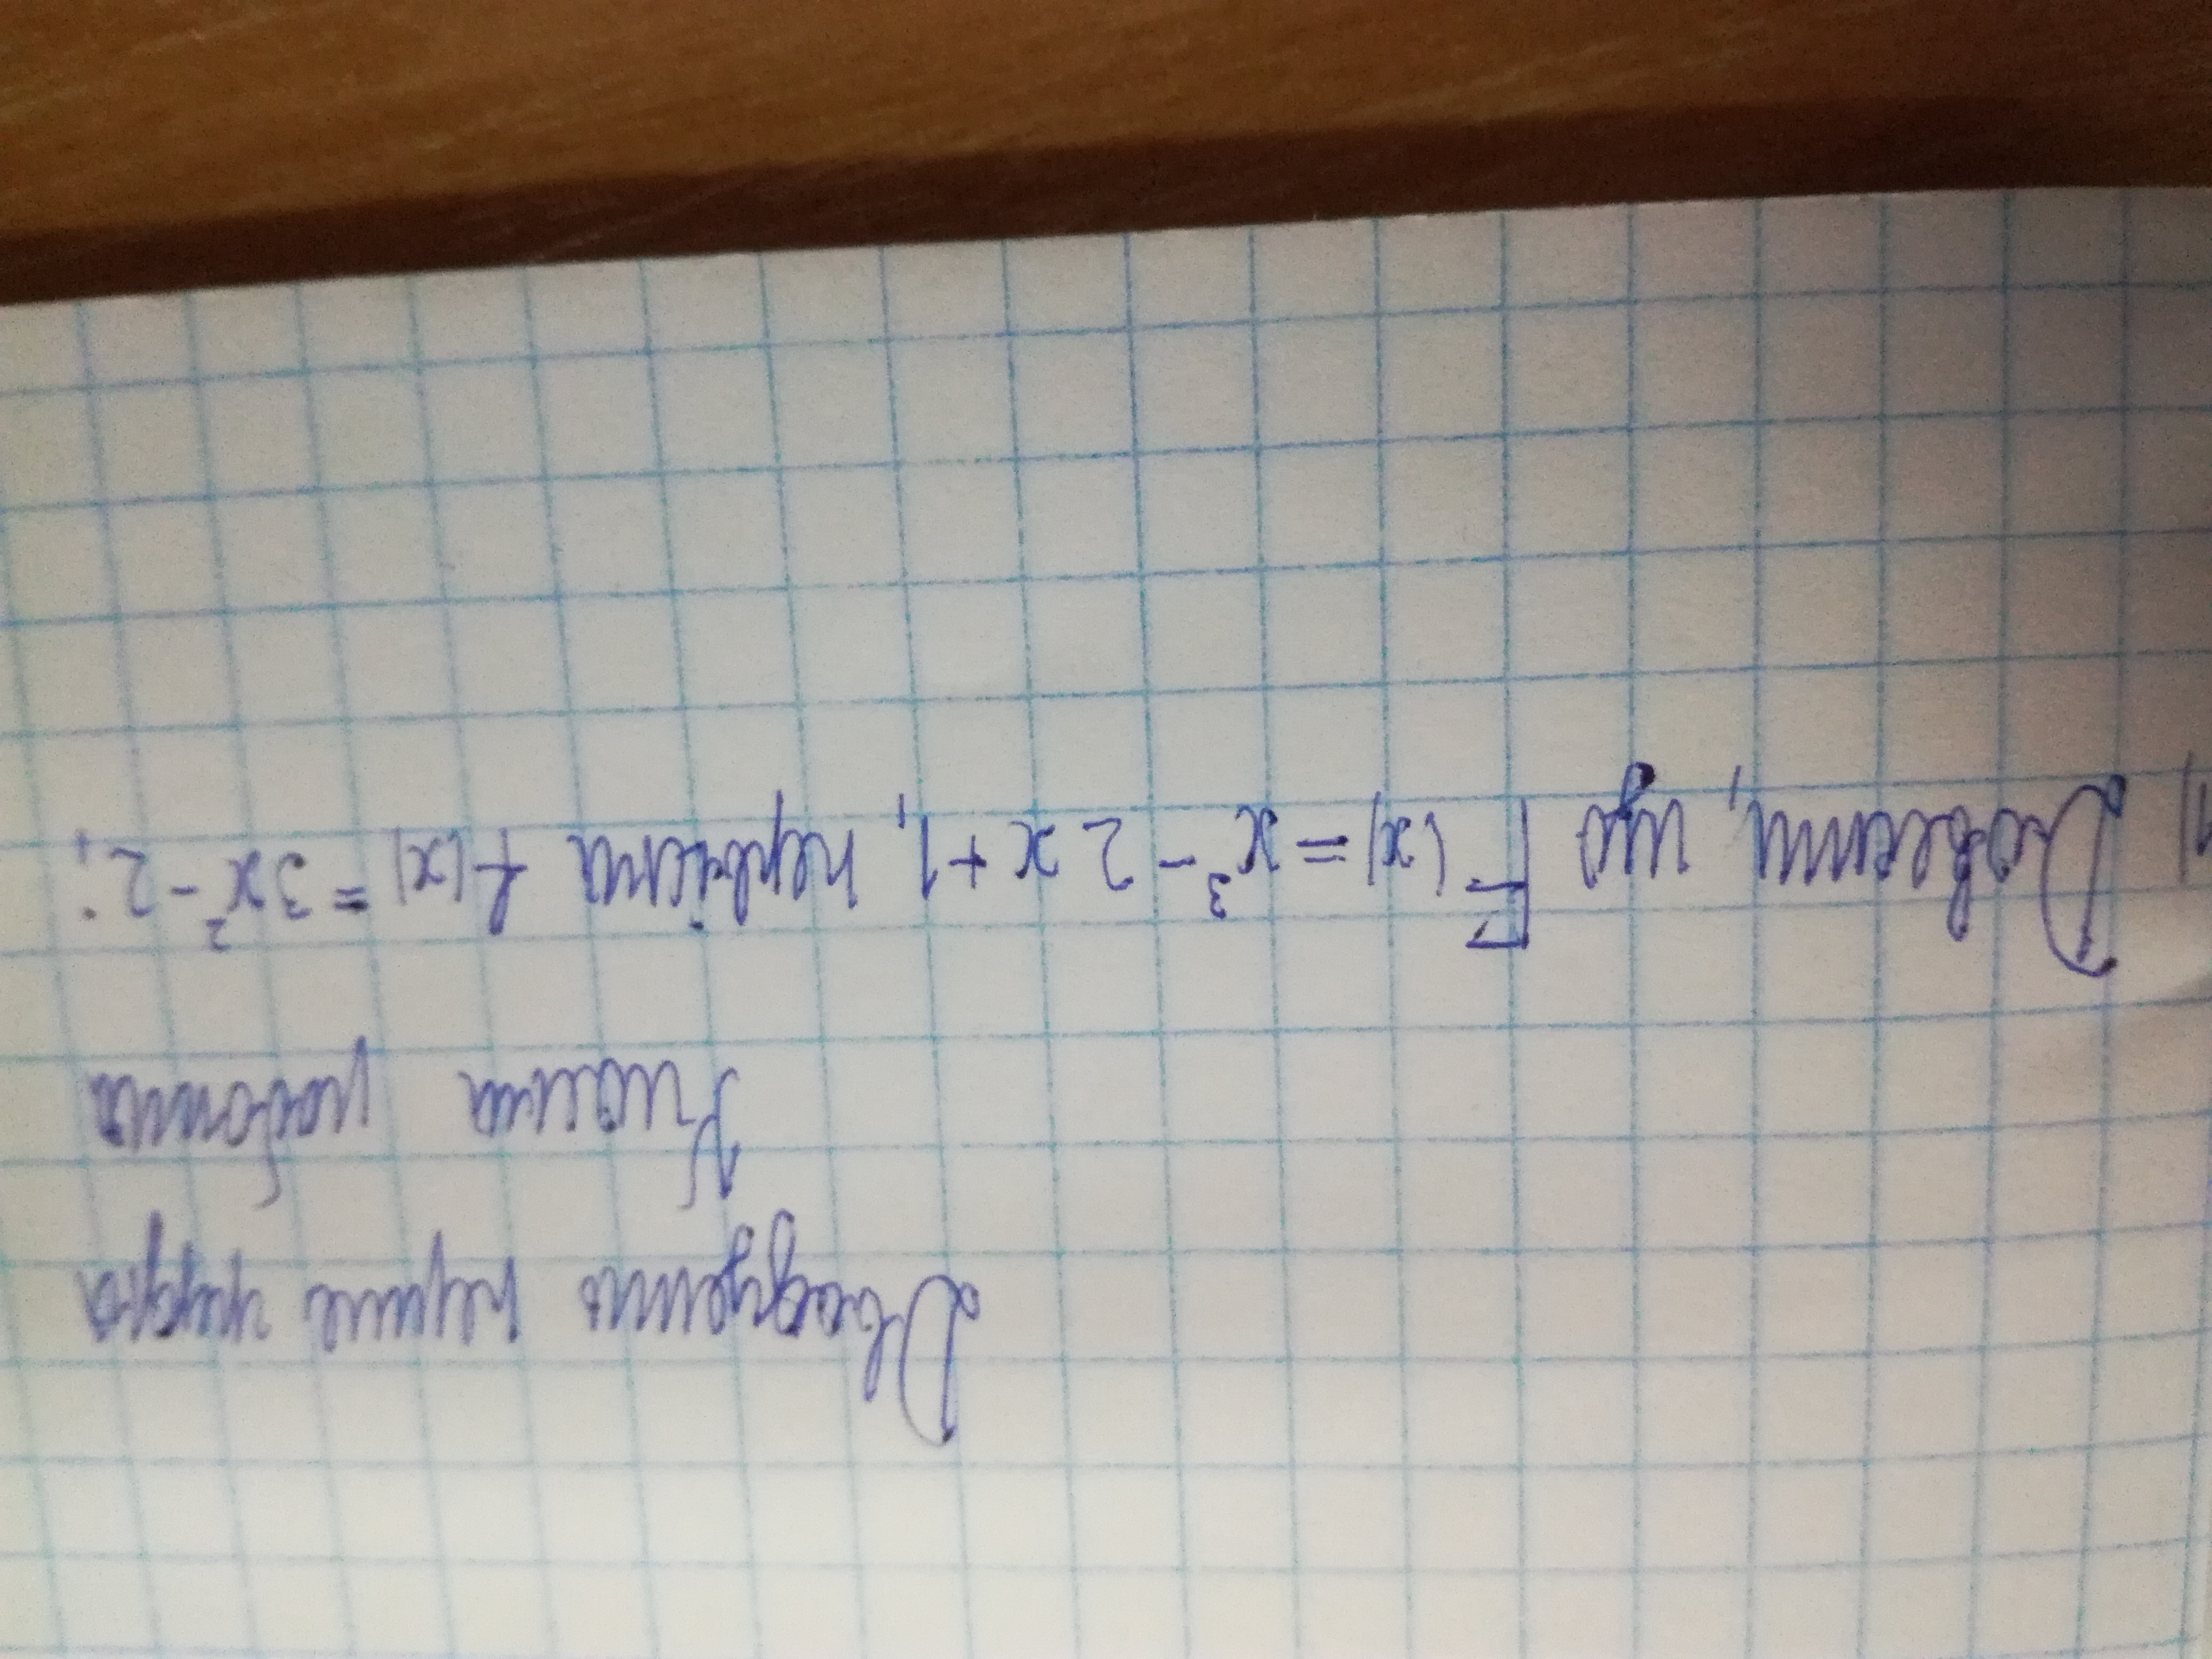 Двадцять перше грудня
Класна робота
1) Довести, що F(x) = x³ - 2x + 1, первісна f(x) = 3x² - 2;